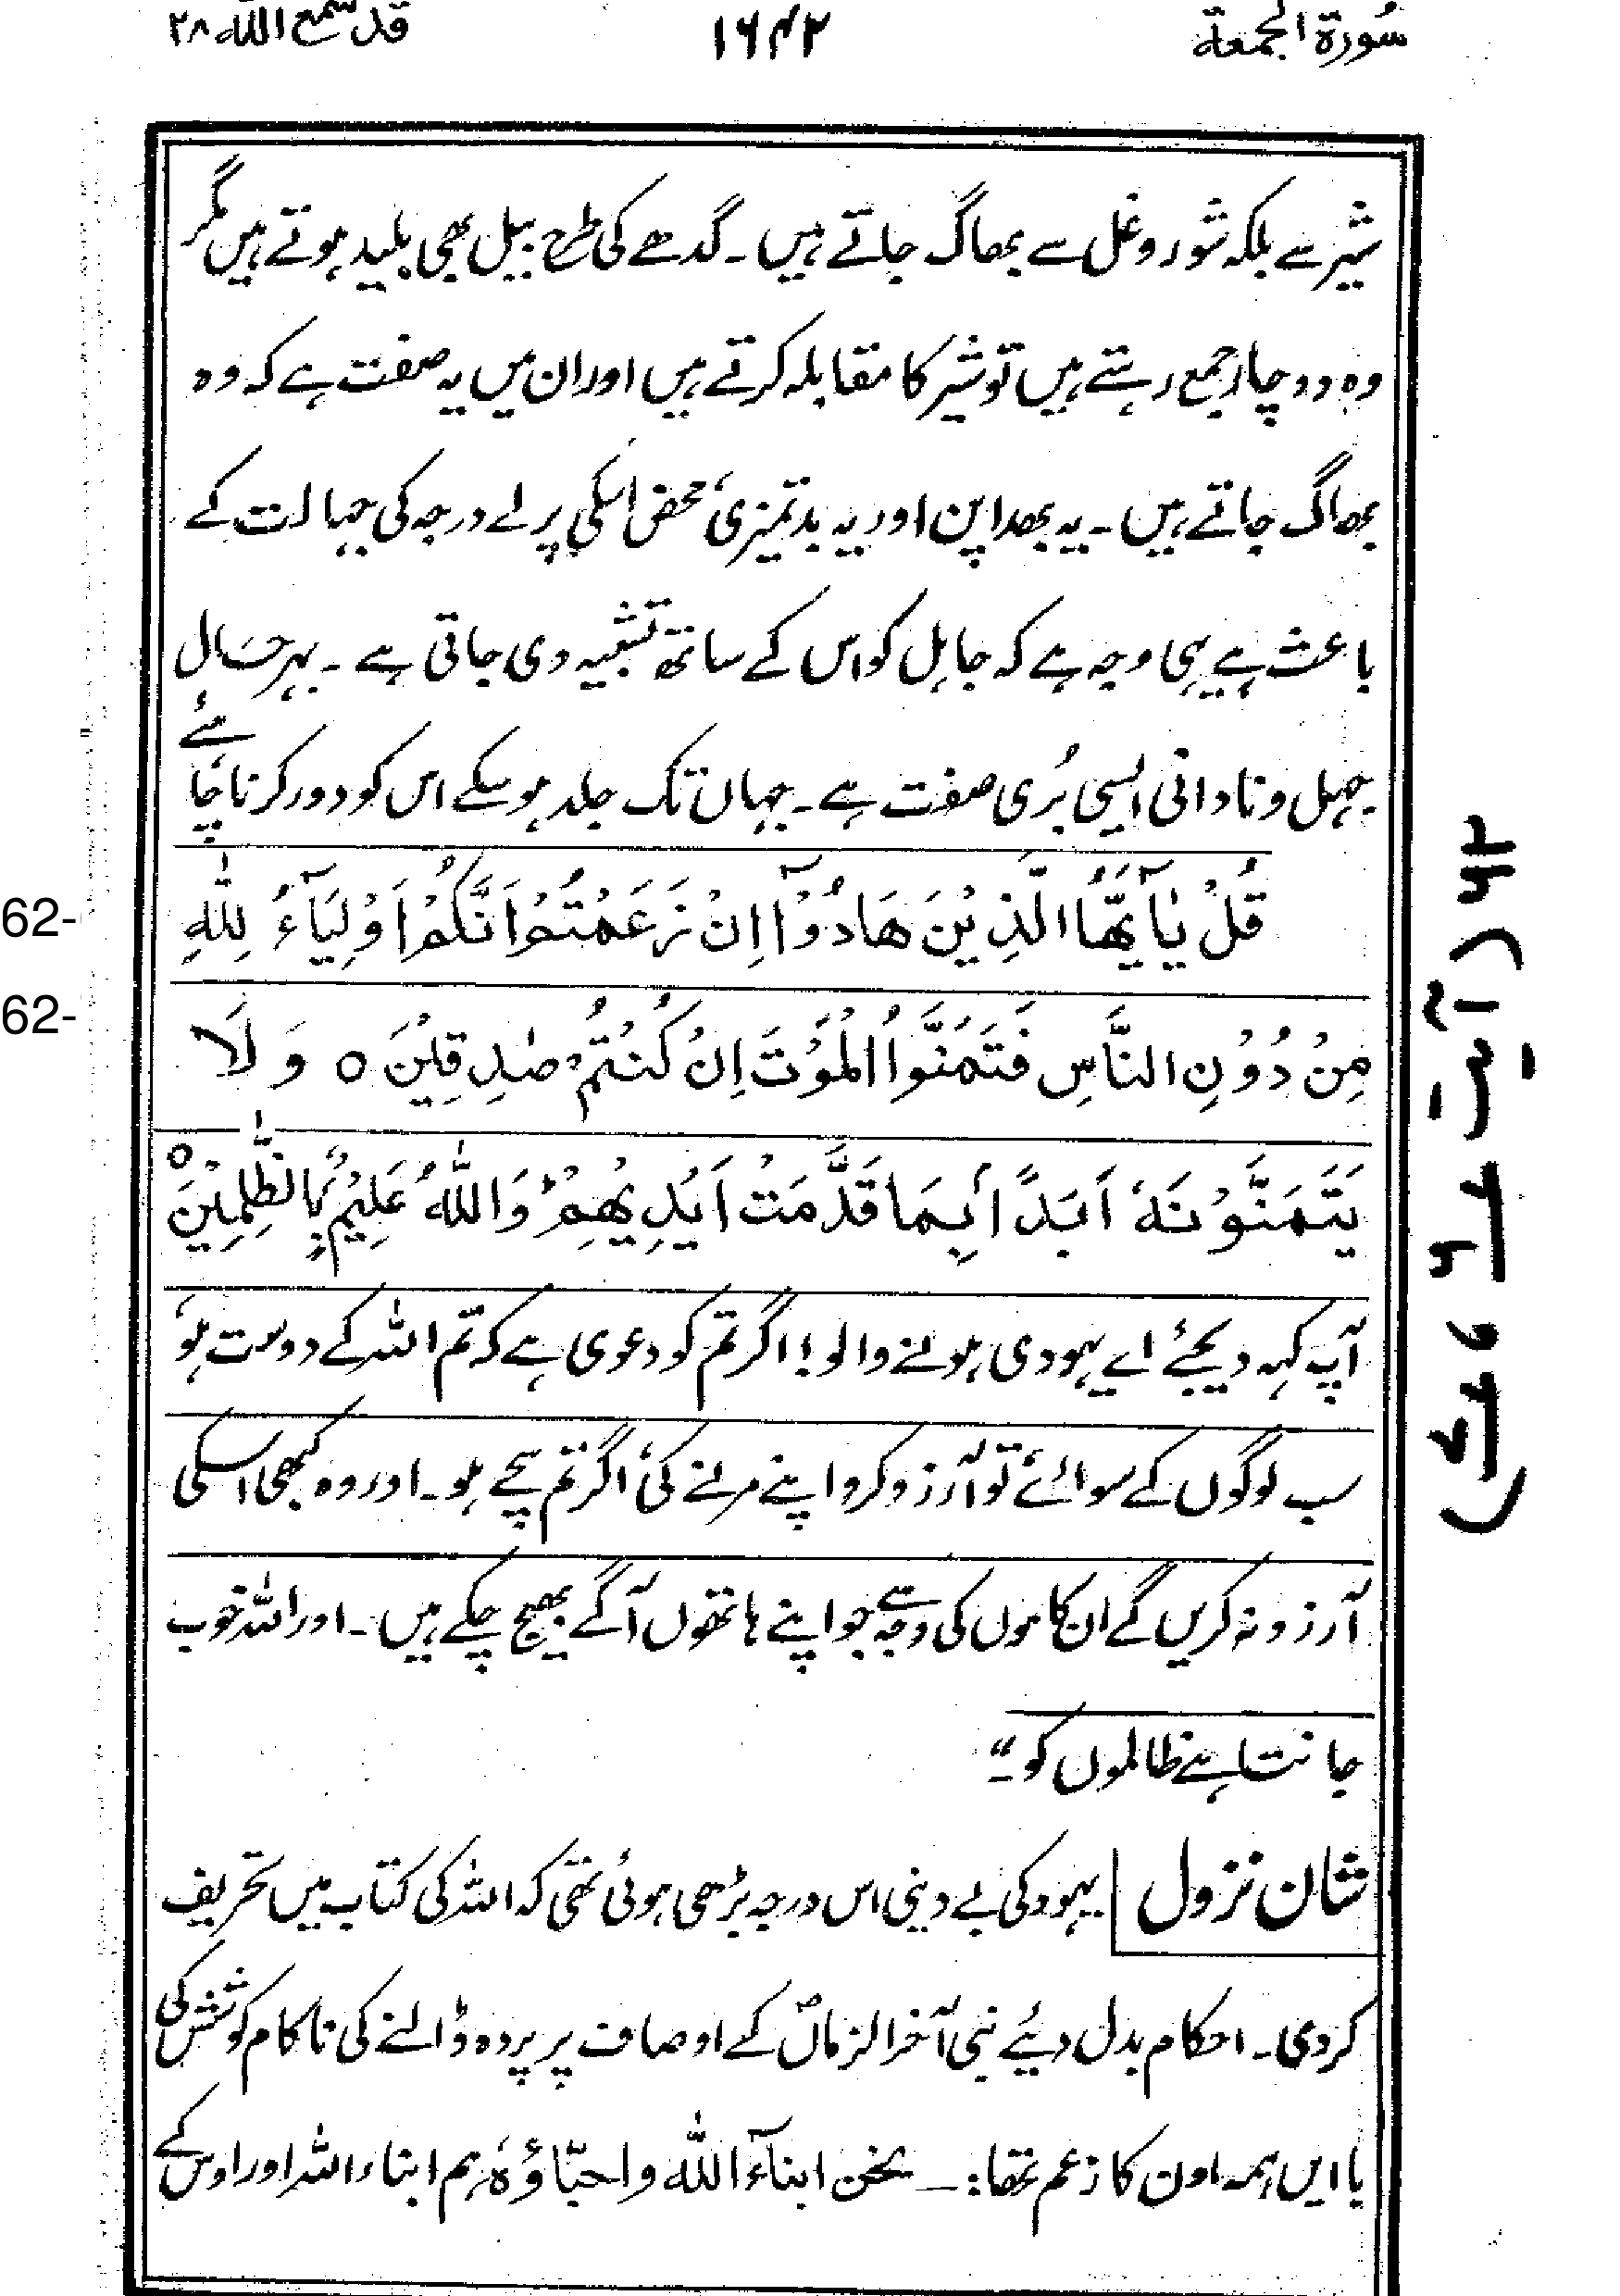 سُورۃ الجمعۃ
۱۶۴۲
قد سمع اللہ ۲۸
شیر سے بلکہ شور و غل سے بھاگ جاتے ہیں۔ گدھے کی طرح بیل بھی پلید ہوتے ہیں مگر
وہ دو چار جمع رہتے ہیں تو شیر کا مقابلہ کرتے ہیں اور ان میں یہ صفت ہے کہ وہ
بھاگ جاتے ہیں۔ یہ بھدا پن اور یہ بدتمیزی محض اسکی پرلے درجہ کی جہالت کے
باعث ہے یہی وجہ ہے کہ جاہل کو اس کے ساتھ تشبیہ دی جاتی ہے۔ بہرحال
جہل و نادانی ایسی بُری صفت ہے۔ جہاں تک جلد ہو سکے اس کو دور کرنا چاہئے
62-
قُلْ يٰٓاَيُّهَا الَّذِيْنَ هَادُوْٓا اِنْ زَعَمْتُمْ اَنَّكُمْ اَوْلِيَآءُ لِلّٰهِ
62-
مِنْ دُوْنِ النَّاسِ فَتَمَنَّوُا الْمَوْتَ اِنْ كُنْتُمْ صٰدِقِيْنَ ○ وَ لَا
يَتَمَنَّوْنَهٗ اَبَدًا اَبِمَا قَدَّمَتْ اَيْدِيْهِمْ ؕ وَاللّٰهُ عَلِيْمٌۢ بِالظّٰلِمِيْنَ ○
۶۲ (آیت ۶ و ۷)
آپ کہہ دیجئے اے یہودی ہونے والو! اگر تم کو دعوی ہے کہ تم اللہ کے دوست ہو
سب لوگوں کے سوائے تو آرزو کرو اپنے مرنے کی اگر تم سچے ہو۔ اور وہ کبھی اسکی
آرزو نہ کریں گے ان کاموں کی وجہ سے جو اپنے ہاتھوں آگے بھیج چکے ہیں۔ اور اللہ خوب
جانتا ہے ظالموں کو۔"
شان نزول
یہود کی بے دینی اس درجہ بڑھی ہوئی تھی کہ اللہ کی کتاب میں تحریف
کردی۔ احکام بدل دیئے نبی آخر الزماںؐ کے اوصاف پر پردہ ڈالنے کی ناکام کوشش کی
با ایں ہمہ اون کا زعم تھا:۔ نحن ابنآء اللہ واحبّاؤہٗ ہم ابناء اللہ اور اوس کے